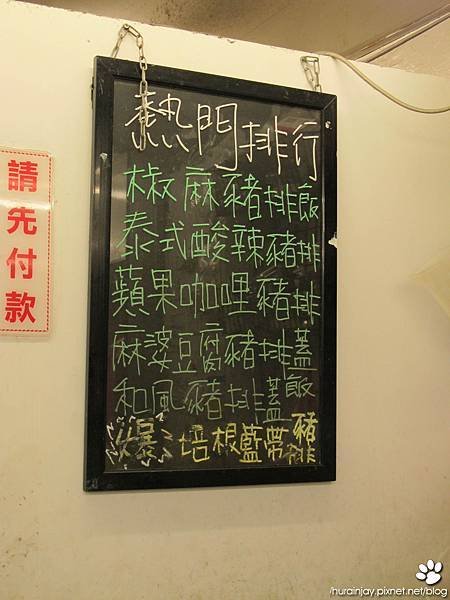 熱門排行
椒麻豬排飯
泰式酸辣豬排
蘋果咖哩豬排
麻婆豆腐豬排蓋飯
和風豬排蓋飯
爆 培根藍帶豬排
請先付款
/hurainjay.pixnet.net/blog